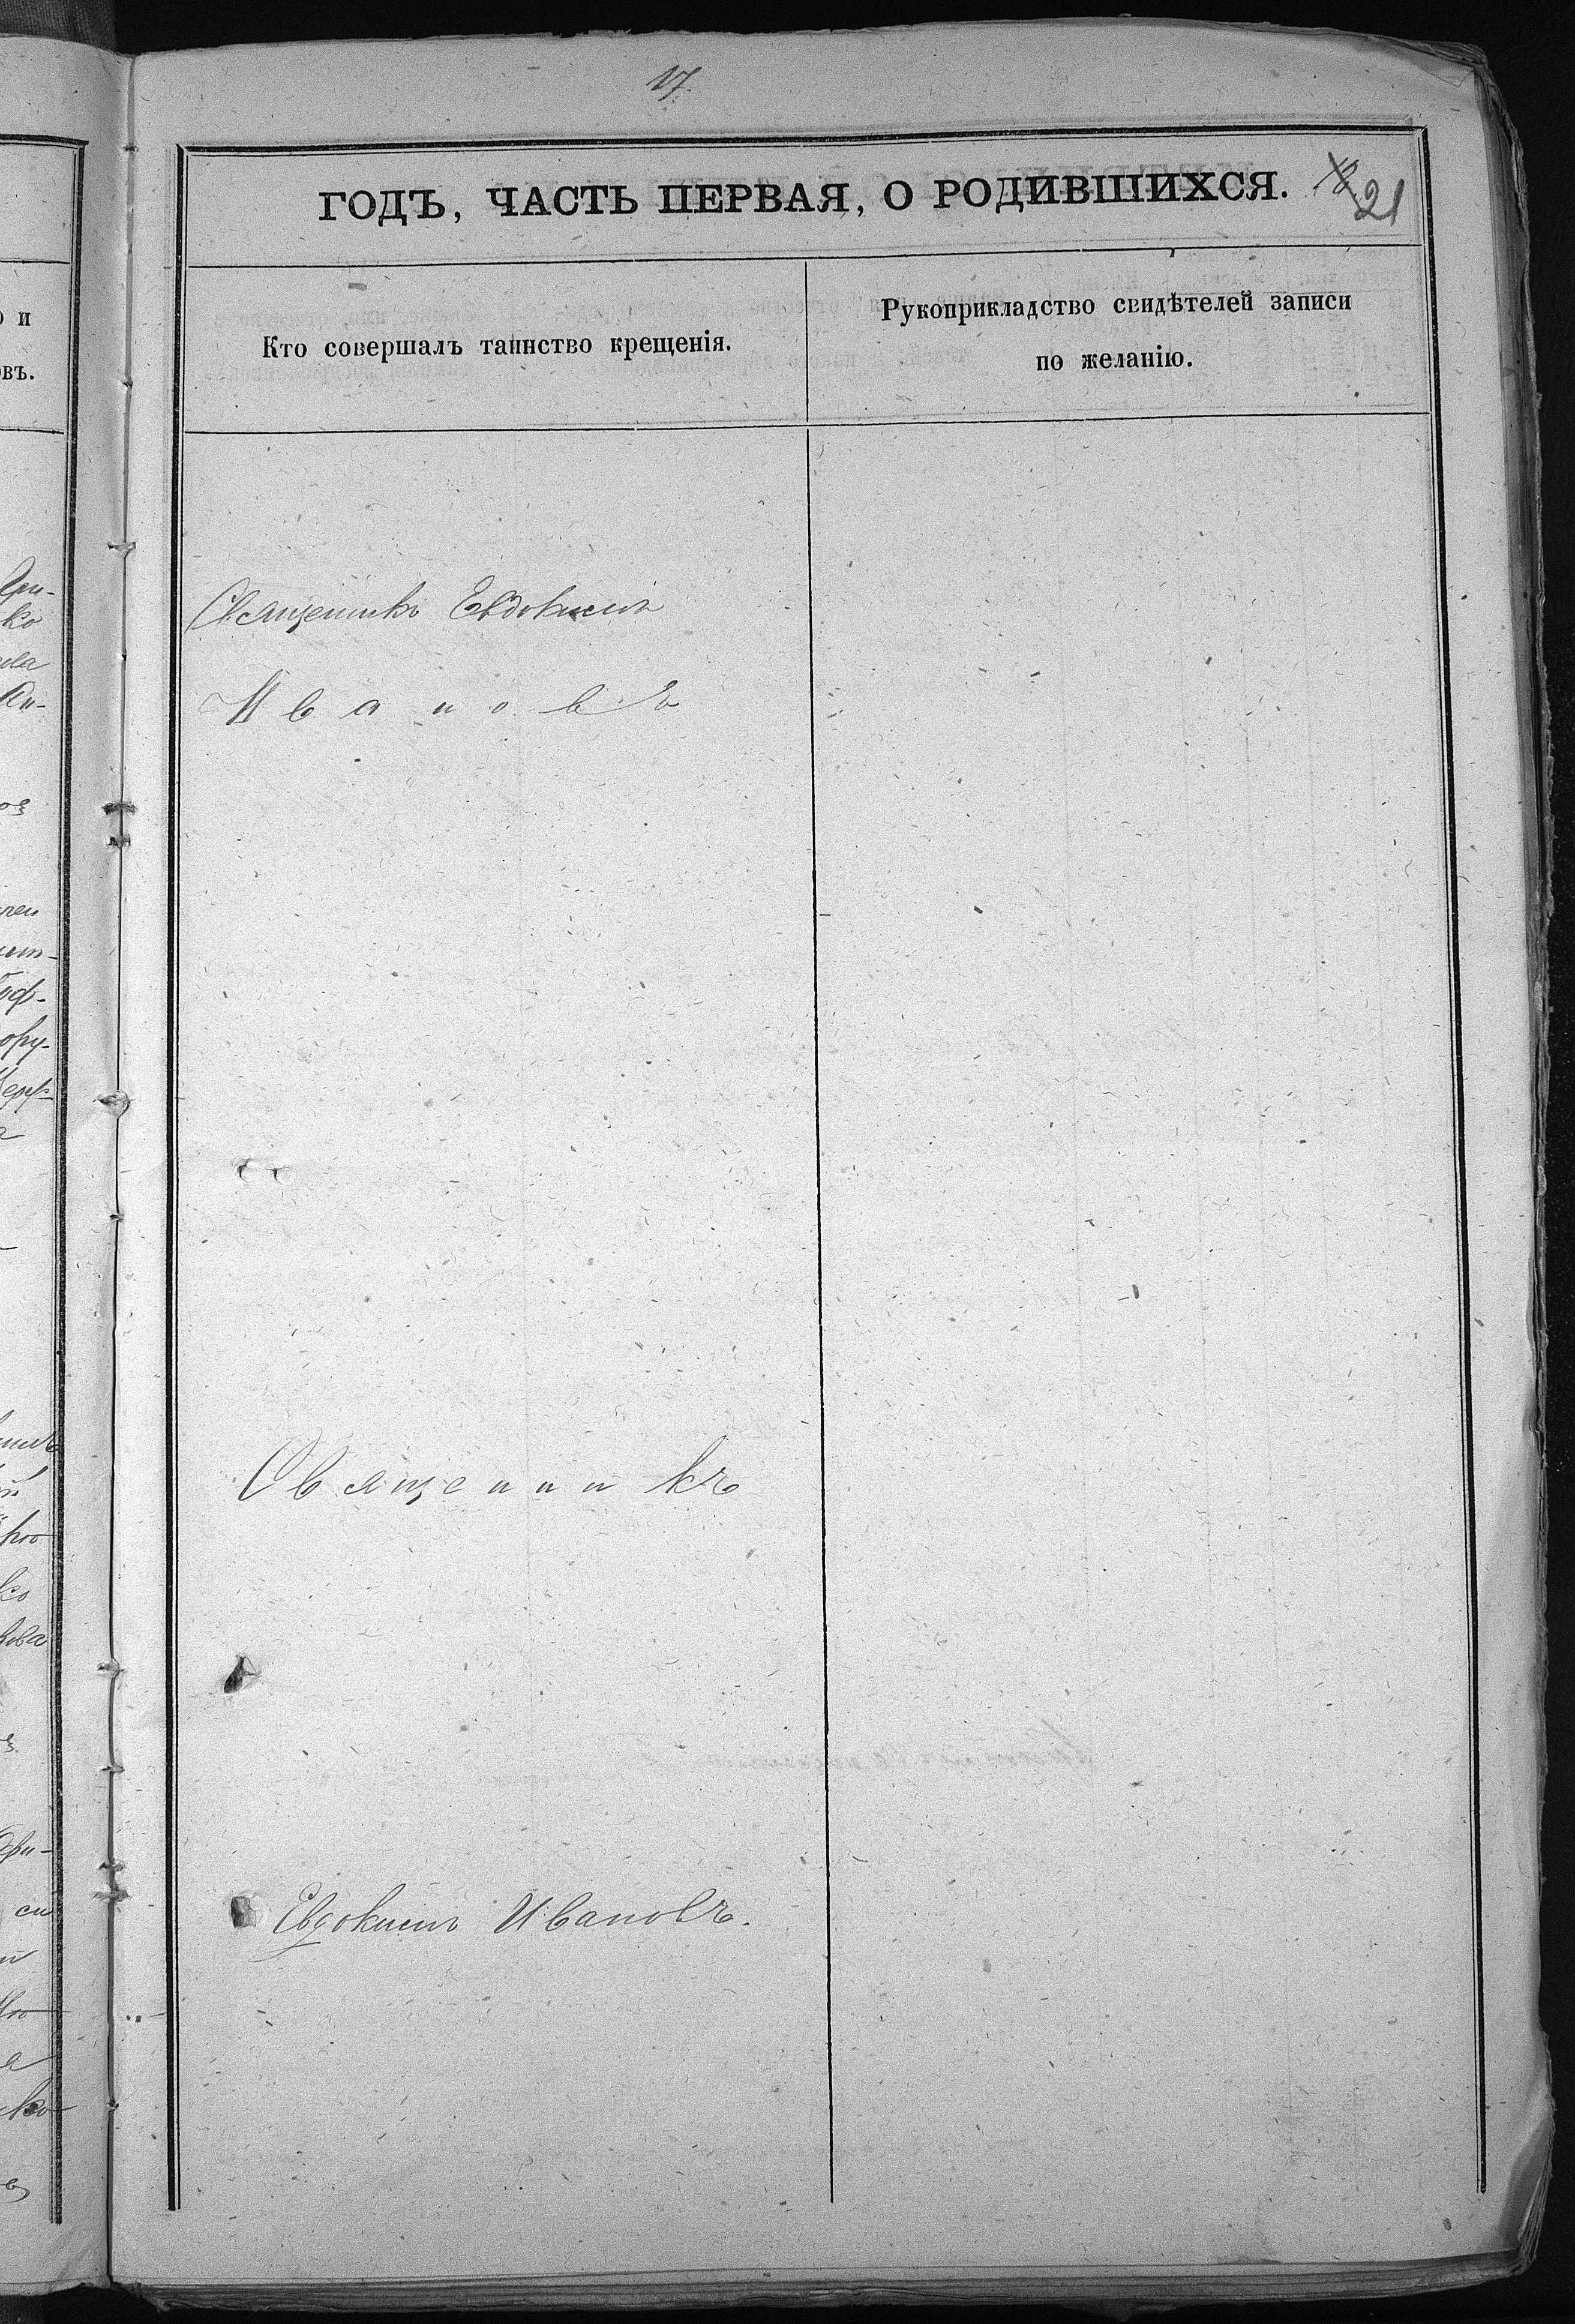 17.
ГОДЪ, ЧАСТЬ ПЕРВАЯ, О РОДИВШИХСЯ.
21
Кто совершалъ таинство крещенія.
Рукоприкладство свидѣтелей записи
по желанію.
Священникъ Евдокимъ
Ивановъ
Священникъ
Евдокимъ Ивановъ.
и
овъ.
ко